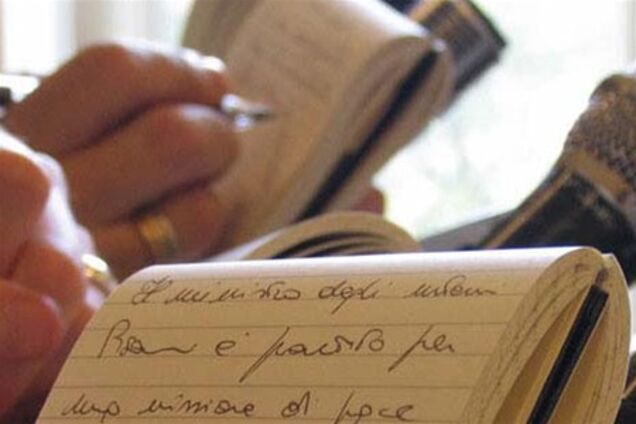 Il ministro degli
è partito per
una missione di pace